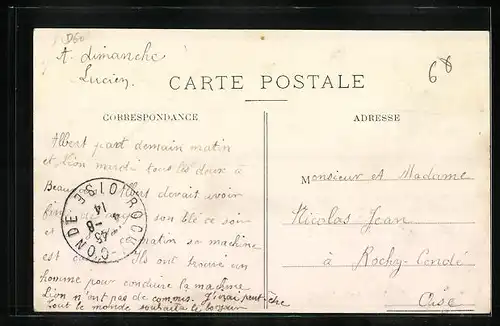 D60
A dimanche
Lucien
68
CARTE POSTALE
CORRESPONDANCE
ADRESSE
Albert part demain matin
et Léon mardi tous les deux à
Albert devait avoir
son blé ce soir
et matin sa machine
est Ils ont trouvé un
homme pour conduire la machine
Léon n'ont pas de commis. J'irai peut-être
Tout le monde souhaite le bonjour
Monsieur et Madame
Nicolas-Jean
à Rochy-Condé
Oise
ROCHY-CONDÉ
OISE